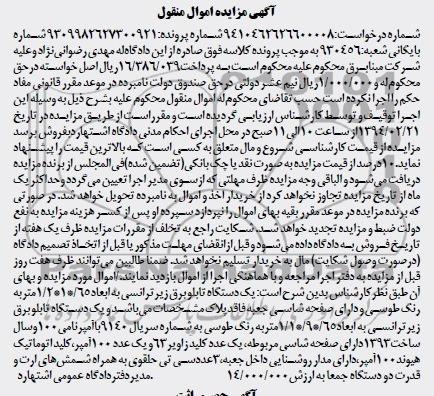 آگهی مزایده اموال منقول
شماره درخواست: ۹۴۱۰۴۶۲۶۲۶۶۰۰۰۰۸ شماره پرونده: ۹۳۰۹۹۸۲۶۲۷۳۰۰۹۲۱ شماره
بایگانی شعبه: ۹۳۰۴۰۶ به موجب پرونده کلاسه فوق صادره از این دادگاه له مهدی رضوانی نژاد و علیه
شرکت مبنا برق محکوم علیه محکوم است به پرداخت ۱۶/۳۸۶/۰۳۹ ریال اصل خواسته در حق
محکوم له و ۱/۰۰۰/۰۰۰ ریال نیم عشر دولتی در حق صندوق دولت نامبرده در موعد مقرر قانونی مفاد
حکم را اجرا نکرده است حسب تقاضای محکوم له اموال منقول محکوم علیه بشرح ذیل به وسیله این
اجرا توقیف و توسط کارشناس ارزیابی گردیده است و مقرر است از طریق مزایده در تاریخ
۱۳۹۴/۰۲/۲۱ از ساعت ۱۰ الی ۱۱ صبح در محل اجرای احکام مدنی دادگاه اشتهارد بفروش برسد
مزایده از قیمت کارشناسی شروع و مال متعلق به کسی است که بالاترین قیمت را پیشنهاد
نماید. ۱۰ درصد از قیمت مزایده به صورت نقد یا چک بانکی (تضمین شده) فی المجلس از برنده مزایده
دریافت می شود و الباقی وجه مزایده ظرف مهلتی که از سوی مدیر اجرا تعیین می گردد و حداکثر یک
ماه از تاریخ مزایده تجاوز نخواهد کرد از خریدار اخذ و اموال به نامبرده تحویل خواهد شد. در صورتی
که برنده مزایده در موعد مقرر بقیه بهای اموال را نپردازد سپرده او پس از کسر هزینه مزایده به نفع
دولت ضبط و مزایده تجدید خواهد شد. شکایت راجع به تخلف از مقررات مزایده ظرف یک هفته از
تاریخ فروش به دادگاه داده می شود و قبل از انقضای مهلت مذکور یا قبل از اتخاذ تصمیم دادگاه
(در صورت وصول شکایت) مال به خریدار تسلیم نخواهد شد. ضمنا طالبین می توانند ظرف هفت روز
قبل از مزایده به دفتر اجرا مراجعه و با هماهنگی اجرا از اموال بازدید نمایند. اموال مورد مزایده و بهای
آن طبق نظر کارشناس بدین شرح است: یک دستگاه تابلو برق زیر ترانسی به ابعاد ۱/۲۰*۱*۰/۶۵ متر به
رنگ طوسی و دارای صفحه شاسی جعبه فاقد پلاک مشخصات می باشد و یک دستگاه تابلو برق
زیر ترانسی به ابعاد ۱/۱۰*۰/۹۰*۰/۶۵ متر به رنگ طوسی به شماره سریال ۹۱۴۰ با آمپر نامی ۱۰۰ و سال
ساخت ۱۳۹۳ دارای صفحه شاسی مربوطه، یک عدد کلید زاویر ۶۳ و یک عدد ۱۰۰ آمپر، کلید اتوماتیک
هیوند ۱۰۰ آمپر، دارای مدار روشنایی داخل جعبه، ۳ عدد سی تی حلقوی به همراه شمش های ارت و
قدرت دو دستگاه جمعا به ارزش ۱۴/۰۰۰/۰۰۰ ریال. مدیر دفتر دادگاه عمومی اشتهارد